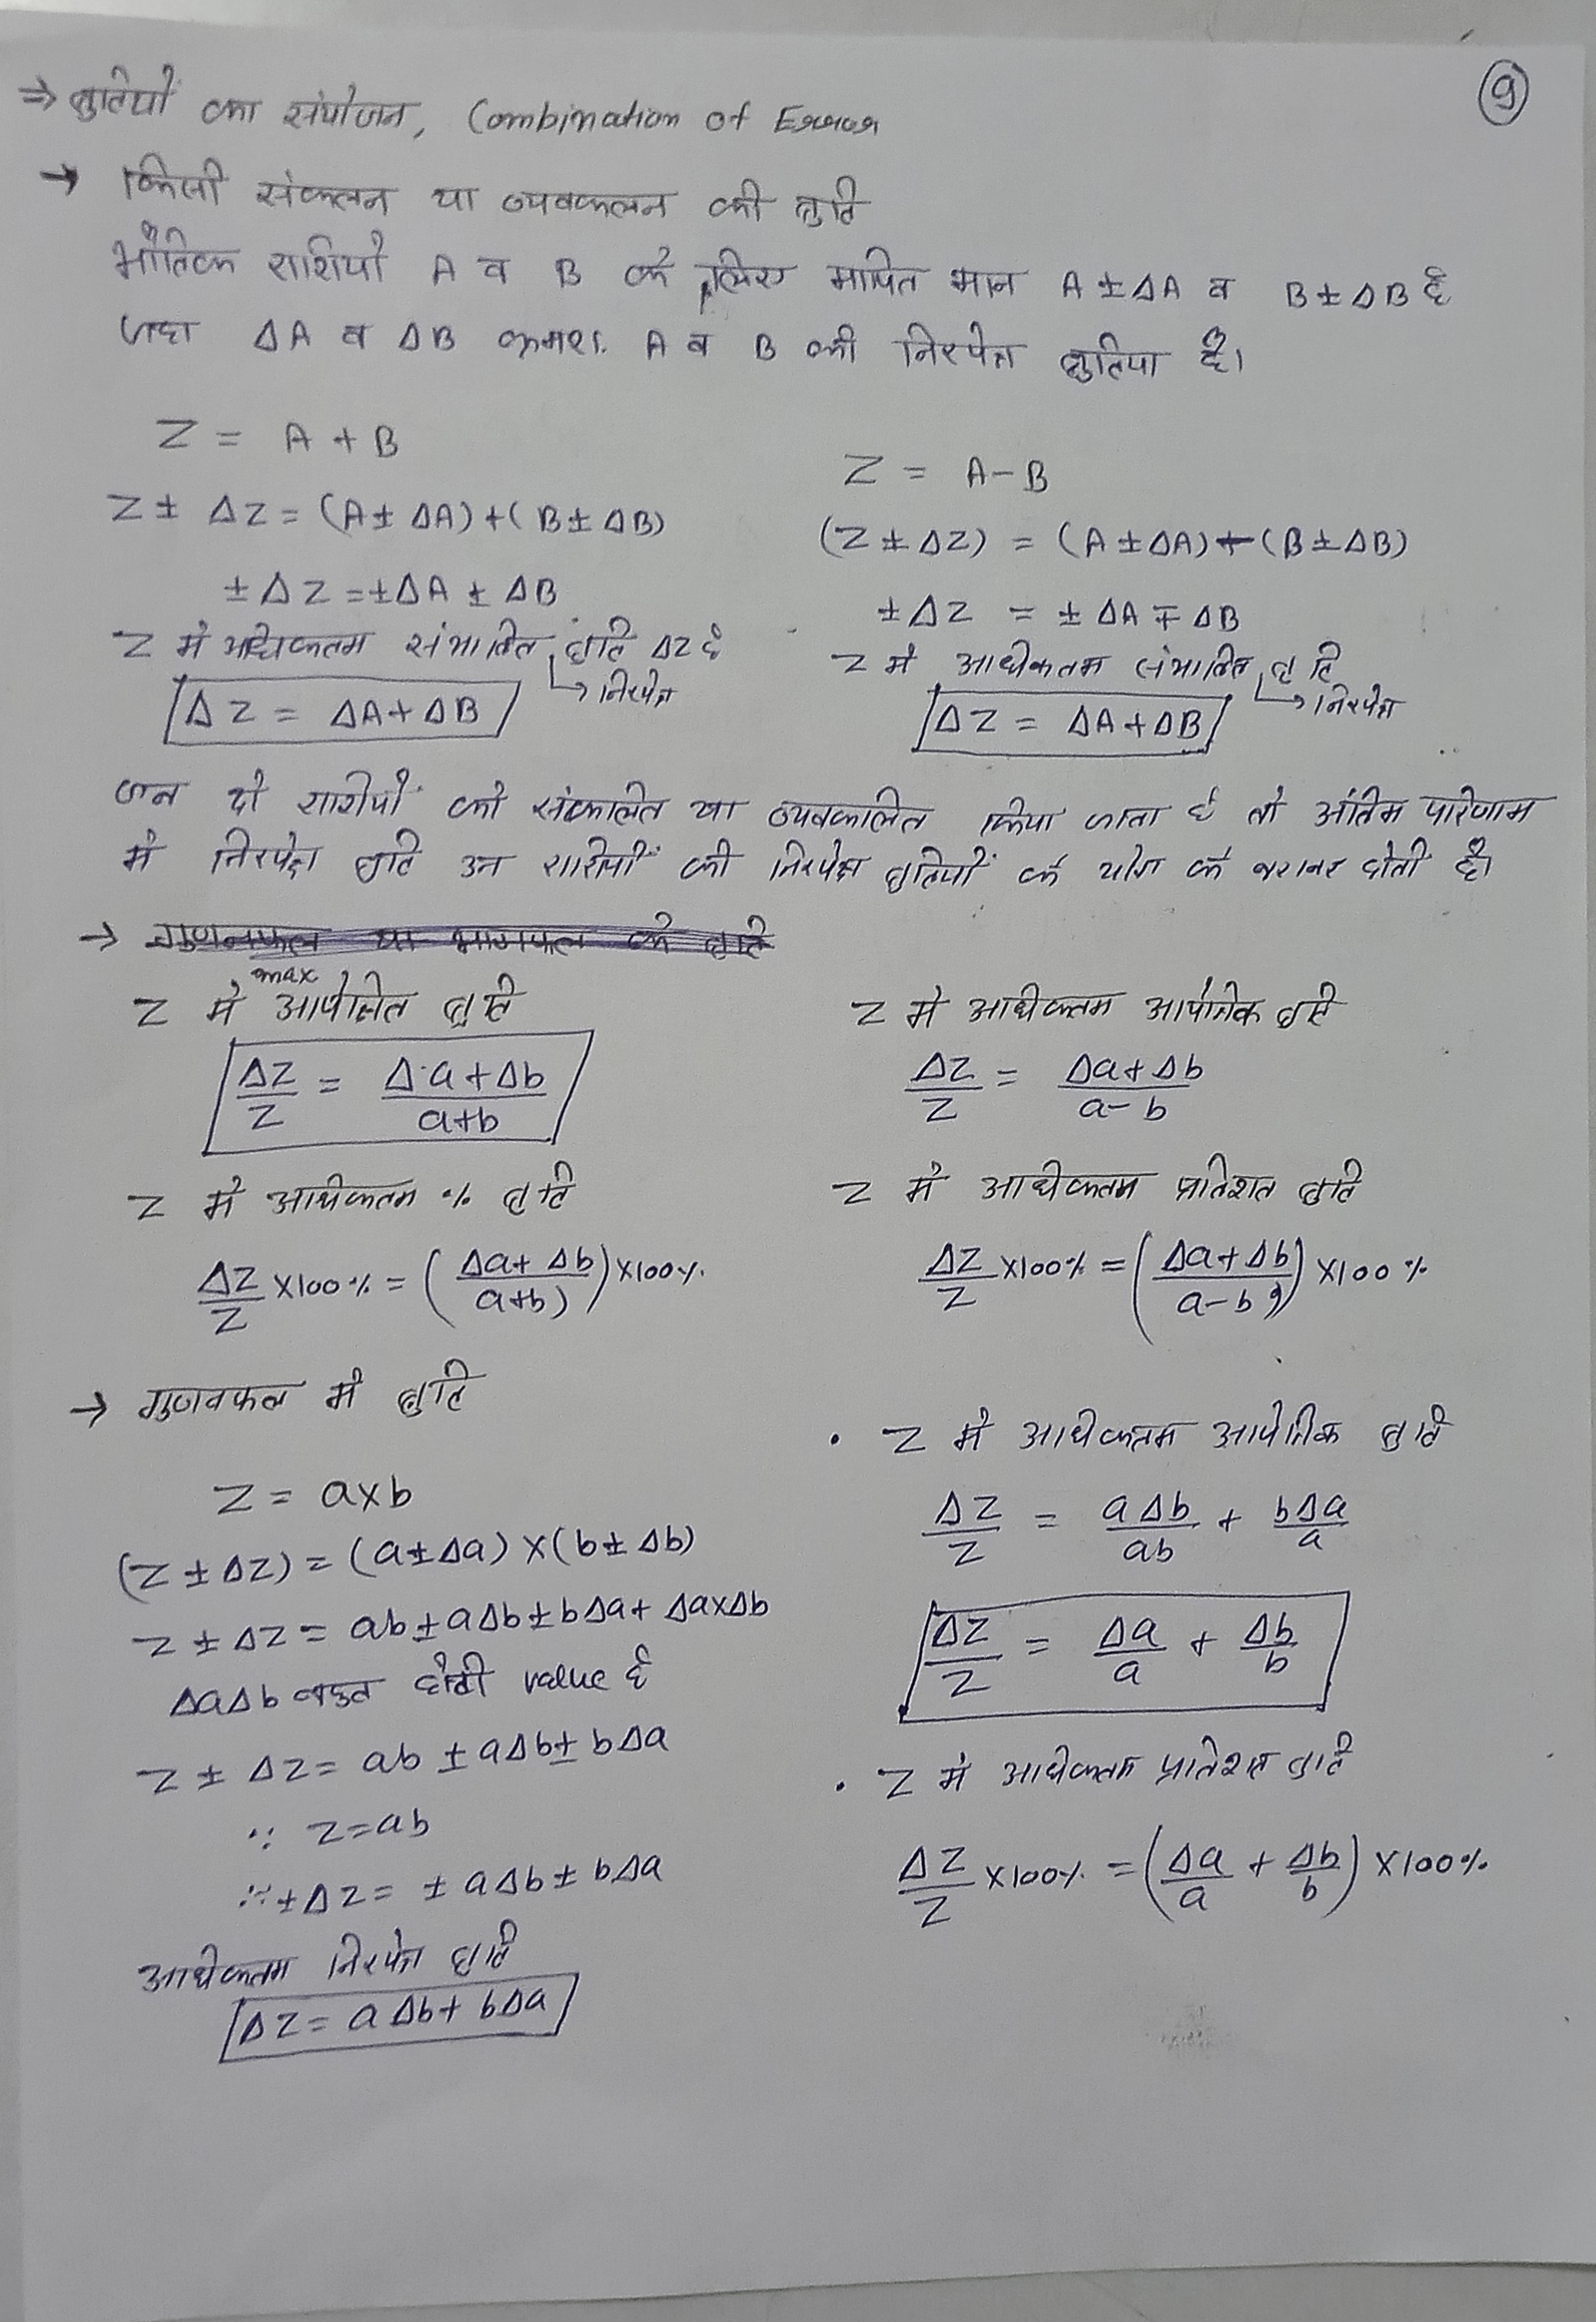 9
⇒ त्रुटियों का संयोजन, Combination of Error
→ किसी संकलन या व्यवकलन की त्रुटि
भौतिक राशियों A व B के लिए मापित मान A ± ΔA व B ± ΔB है
जहा ΔA व ΔB क्रमशः A व B की निरपेक्ष त्रुटिया है।
Z = A + B
Z ± ΔZ = (A ± ΔA) + (B ± ΔB)
± ΔZ = ± ΔA ± ΔB
Z मे अधिकतम संभावित त्रुटि ΔZ है
↳ निरपेक्ष
ΔZ = ΔA + ΔB
Z = A - B
(Z ± ΔZ) = (A ± ΔA) - (B ± ΔB)
± ΔZ = ± ΔA ∓ ΔB
Z मे अधिकतम संभावित त्रुटि
↳ निरपेक्ष
ΔZ = ΔA + ΔB
जब दो राशियों को संकलित या व्यवकलित किया जाता है तो अंतिम परिणाम
मे निरपेक्ष त्रुटि उन राशियों की निरपेक्ष त्रुटियों के योग के बराबर होती है।
→ गुणनफल या भागफल की त्रुटि
max
Z मे आपेक्षित त्रुटि
ΔZ/Z = Δa + Δb / a+b
Z मे अधिकतम % त्रुटि
ΔZ/Z × 100 % = (Δa + Δb / a+b) × 100 %
Z मे अधिकतम आपेक्षिक त्रुटि
ΔZ/Z = Δa + Δb / a - b
Z मे अधिकतम प्रतिशत त्रुटि
ΔZ/Z × 100 % = (Δa + Δb / a - b) × 100 %
→ गुणनफल में त्रुटि
Z = a×b
(Z ± ΔZ) = (a ± Δa) × (b ± Δb)
Z ± ΔZ = ab ± aΔb ± bΔa + Δa×Δb
ΔaΔb बहुत छोटी value है
Z ± ΔZ = ab ± aΔb ± bΔa
∵ Z = ab
∵ ± ΔZ = ± aΔb ± bΔa
अधिकतम निरपेक्ष त्रुटि
ΔZ = aΔb + bΔa
• Z मे अधिकतम आपेक्षिक त्रुटि
ΔZ/Z = aΔb/ab + bΔa/a
ΔZ/Z = Δa/a + Δb/b
• Z मे अधिकतम प्रतिशत त्रुटि
ΔZ/Z × 100 % = (Δa/a + Δb/b) × 100 %